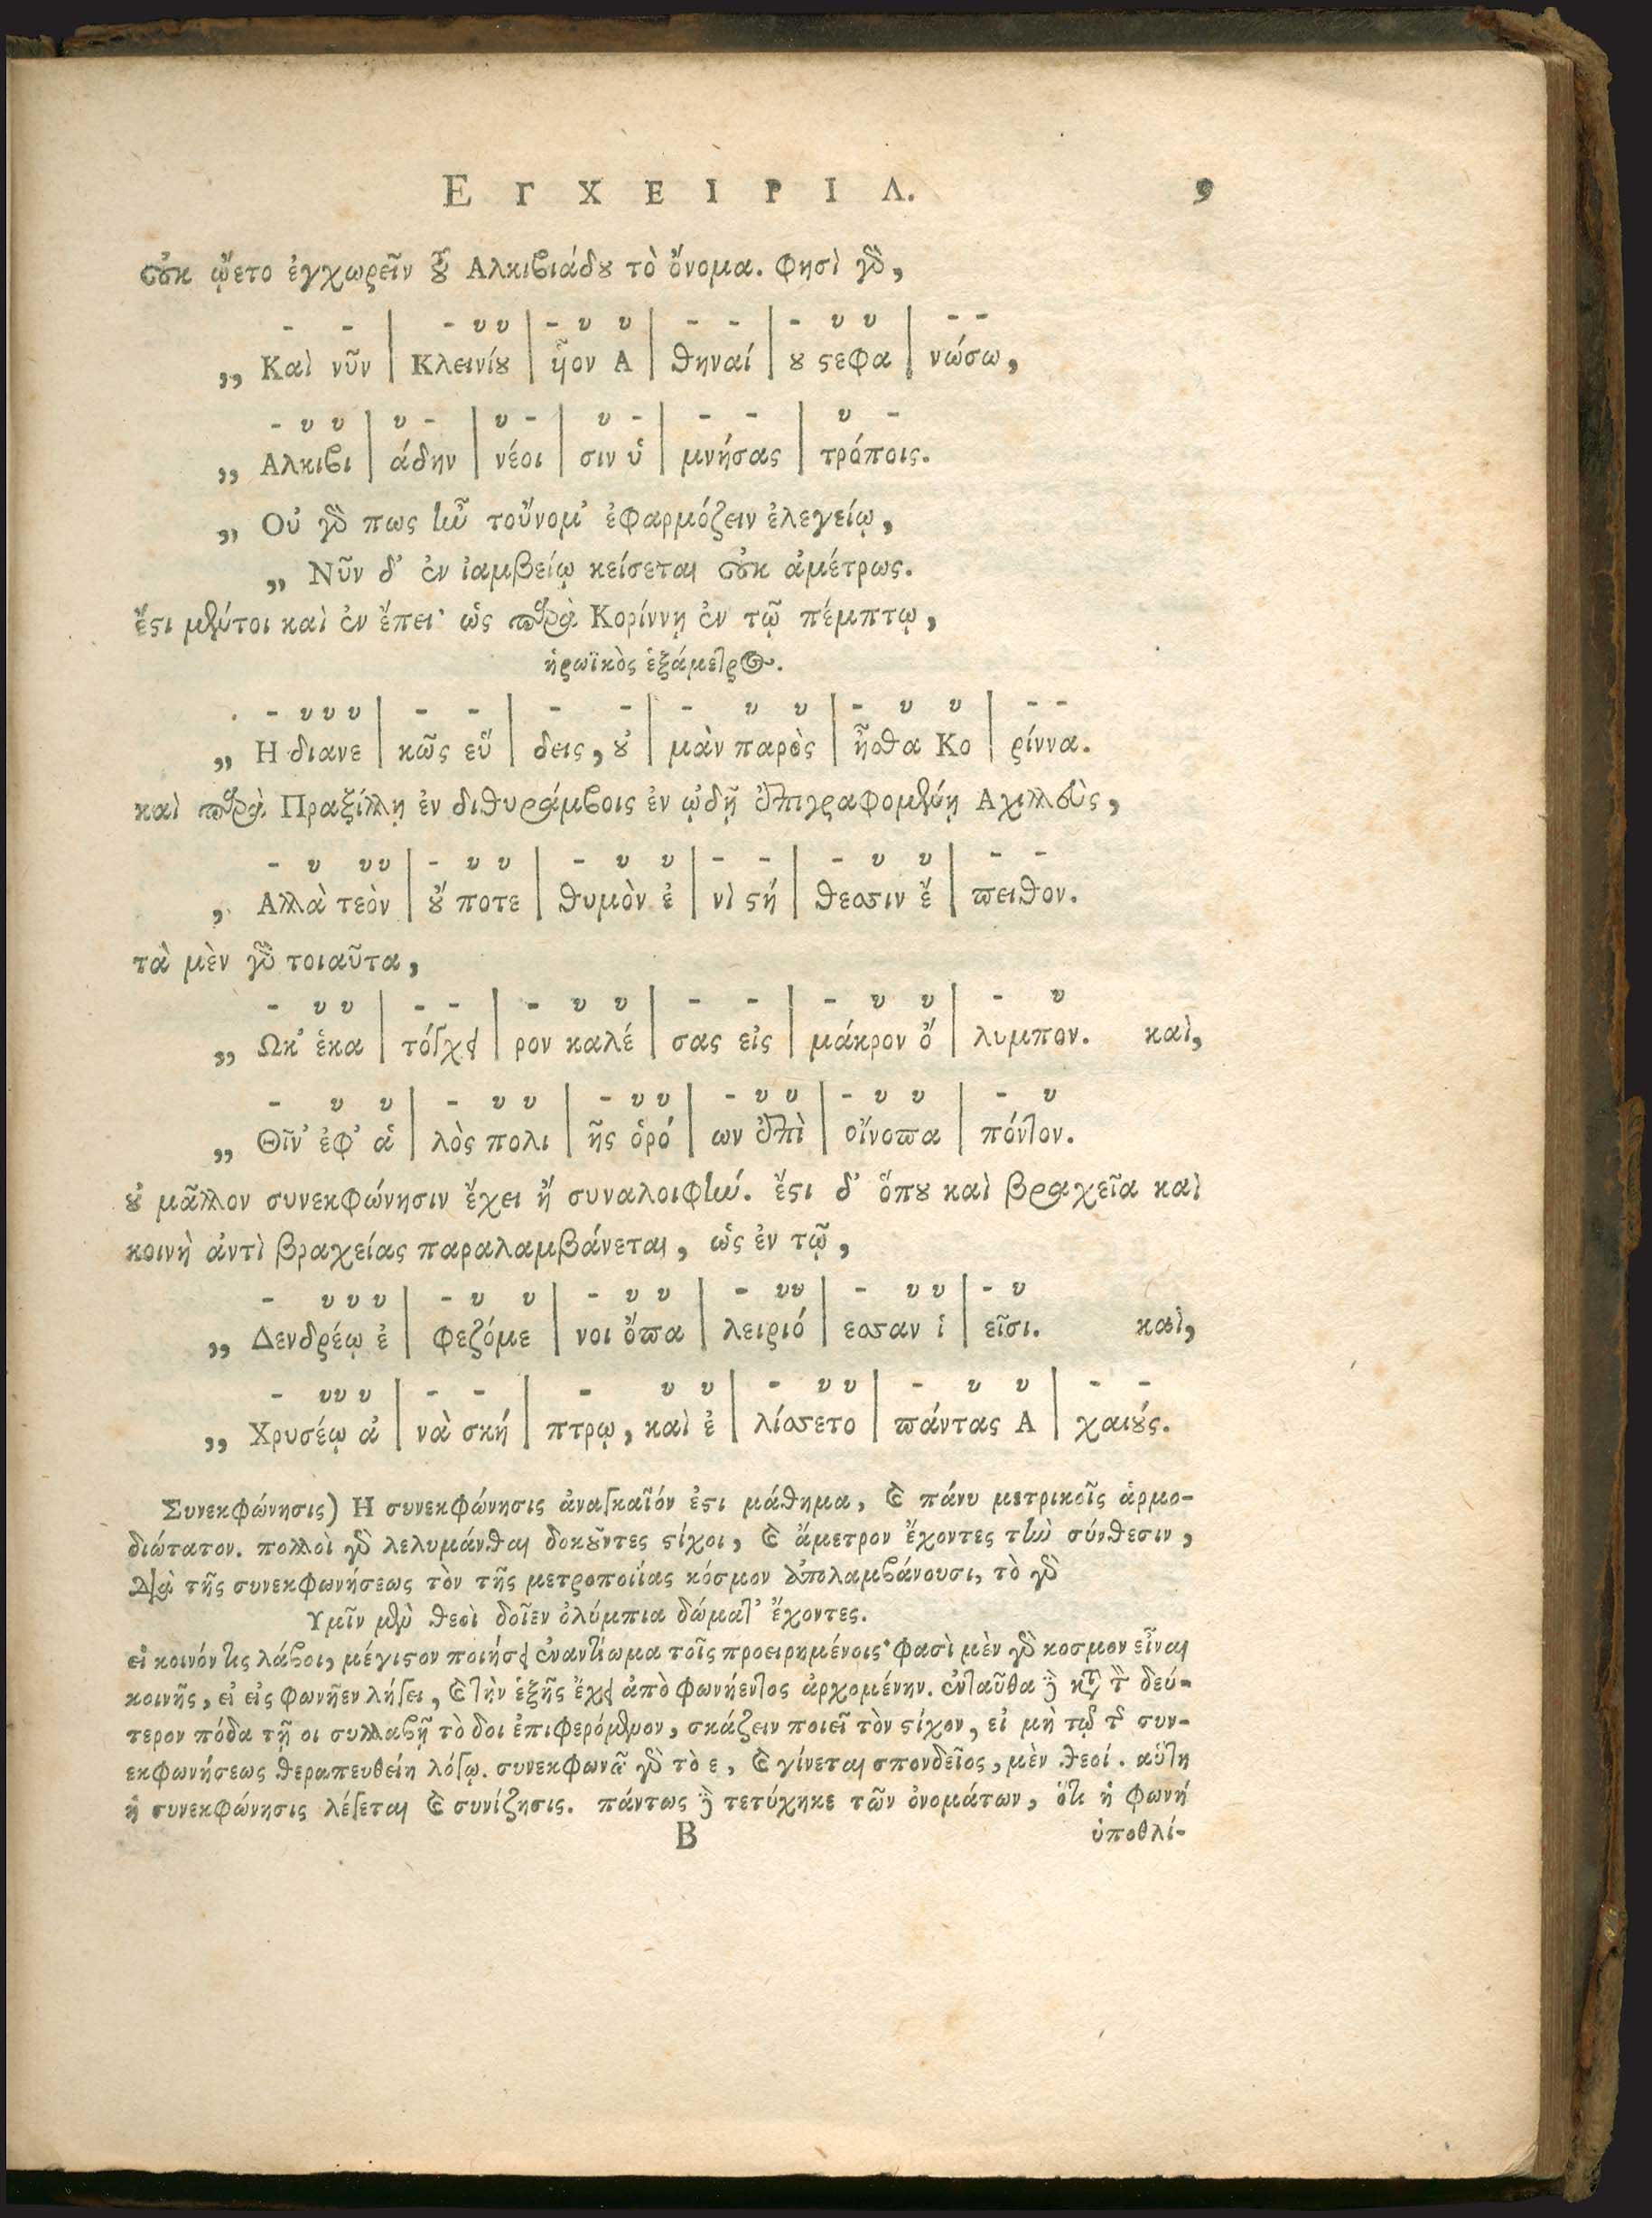 ΕΓΧΕΙΡΙΔ. 9
οὐκ ᾤετο ἐγχωρεῖν τοῦ Αλκιβιάδου τὸ ὄνομα. φησὶ γὰρ,
- - | - υυ | - υ υ | - - | - υ υ | - -
„ Καὶ νῦν | Κλεινίου | ἧον Α | θηναί | ου στεφα | νώσω,
- υ υ | υ - | υ - | υ - | - - | υ -
„ Αλκιβι | άδην | νέοι | σιν ὑ | μνήσας | τρόποις.
„ Οὐ γὰρ πως ἦν τοὔνομ' ἐφαρμόζειν ἐλεγείῳ,
„ Νῦν δ' ἐν ἰαμβείῳ κείσεται οὐκ ἀμέτρως.
ἔστι μέντοι καὶ ἐν ἔπει· ὡς παρὰ Κορίννῃ ἐν τῷ πέμπτῳ,
ἡρωϊκὸς ἑξάμετρος.
- υυυ | - - | - - | - υ υ | - υ υ | - -
„ Η διανε | κῶς εὕ | δεις, οὐ | μὰν παρὸς | ἦσθα Κο | ρίννα.
καὶ παρὰ Πραξίλλῃ ἐν διθυράμβοις ἐν ᾠδῇ ἐπιγραφομένῃ Αχιλλεὺς,
- υ υυ | - υ υ | - υ υ | - - | - υ υ | - -
, Αλλὰ τεὸν | οὔ ποτε | θυμὸν ἐ | νὶ στή | θεσσιν ἔ | πειθον.
τὰ μὲν γὰρ τοιαῦτα,
- υ υ | - - | - υ υ | - - | - υ υ | - υ
„ Ωκ' ἑκα | τόγχει | ρον καλέ | σας εἰς | μάκρον ὄ | λυμπον. καὶ,
- υ υ | - υ υ | - υυ | - υ υ | - υ υ | - υ
„ Θῖν' ἐφ' ἁ | λὸς πολι | ῆς ὁρό | ων ἐπὶ | οἴνοπα | πόντον.
οὐ μᾶλλον συνεκφώνησιν ἔχει ἢ συναλοιφήν. ἔστι δ' ὅπου καὶ βραχεῖα καὶ
κοινὴ ἀντὶ βραχείας παραλαμβάνεται, ὡς ἐν τῷ,
- υυυ | - υ υ | - υ υ | - υυ | - υυ | - υ
„ Δενδρέῳ ἐ | φεζόμε | νοι ὄπα | λειριό | εσσαν ἱ | εῖσι. καὶ,
- υυ υ | - - | - υ υ | - υυ | - υ υ | - -
„ Χρυσέῳ ἀ | νὰ σκή | πτρῳ, καὶ ἐ | λίσσετο | πάντας Α | χαιούς.
Συνεκφώνησις) Η συνεκφώνησις ἀναγκαῖόν ἐστι μάθημα, καὶ πάνυ μετρικοῖς ἁρμο-
διώτατον. πολλοὶ γὰρ λελυμάνθαι δοκοῦντες στίχοι, καὶ ἄμετρον ἔχοντες τὴν σύνθεσιν,
διὰ τῆς συνεκφωνήσεως τὸν τῆς μετροποιίας κόσμον ἀπολαμβάνουσι, τὸ γὰρ
Υμῖν μὲν θεοὶ δοῖεν ὀλύμπια δώματ' ἔχοντες.
εἰ κοινόν τις λάβοι, μέγιστον ποιήσει ἐναντίωμα τοῖς προειρημένοις· φασὶ μὲν γὰρ κοσμον εἶναι
κοινῆς, εἰ εἰς φωνῆεν λήγει, καὶ τὴν ἑξῆς ἔχει ἀπὸ φωνήεντος ἀρχομένην. ἐνταῦθα δὲ κατὰ τὸν δεύ-
τερον πόδα τῇ οι συλλαβῇ τὸ δοι ἐπιφερόμενον, σκάζειν ποιεῖ τὸν στίχον, εἰ μὴ τῷ τῆς συν-
εκφωνήσεως θεραπευθείη λόγῳ. συνεκφωνᾶ γὰρ τὸ ε, καὶ γίνεται σπονδεῖος, μὲν θεοί. αὕτη
ἡ συνεκφώνησις λέγεται καὶ συνίζησις. πάντως δὲ τετύχηκε τῶν ὀνομάτων, ὅτι ἡ φωνή
Β ὑποθλί-